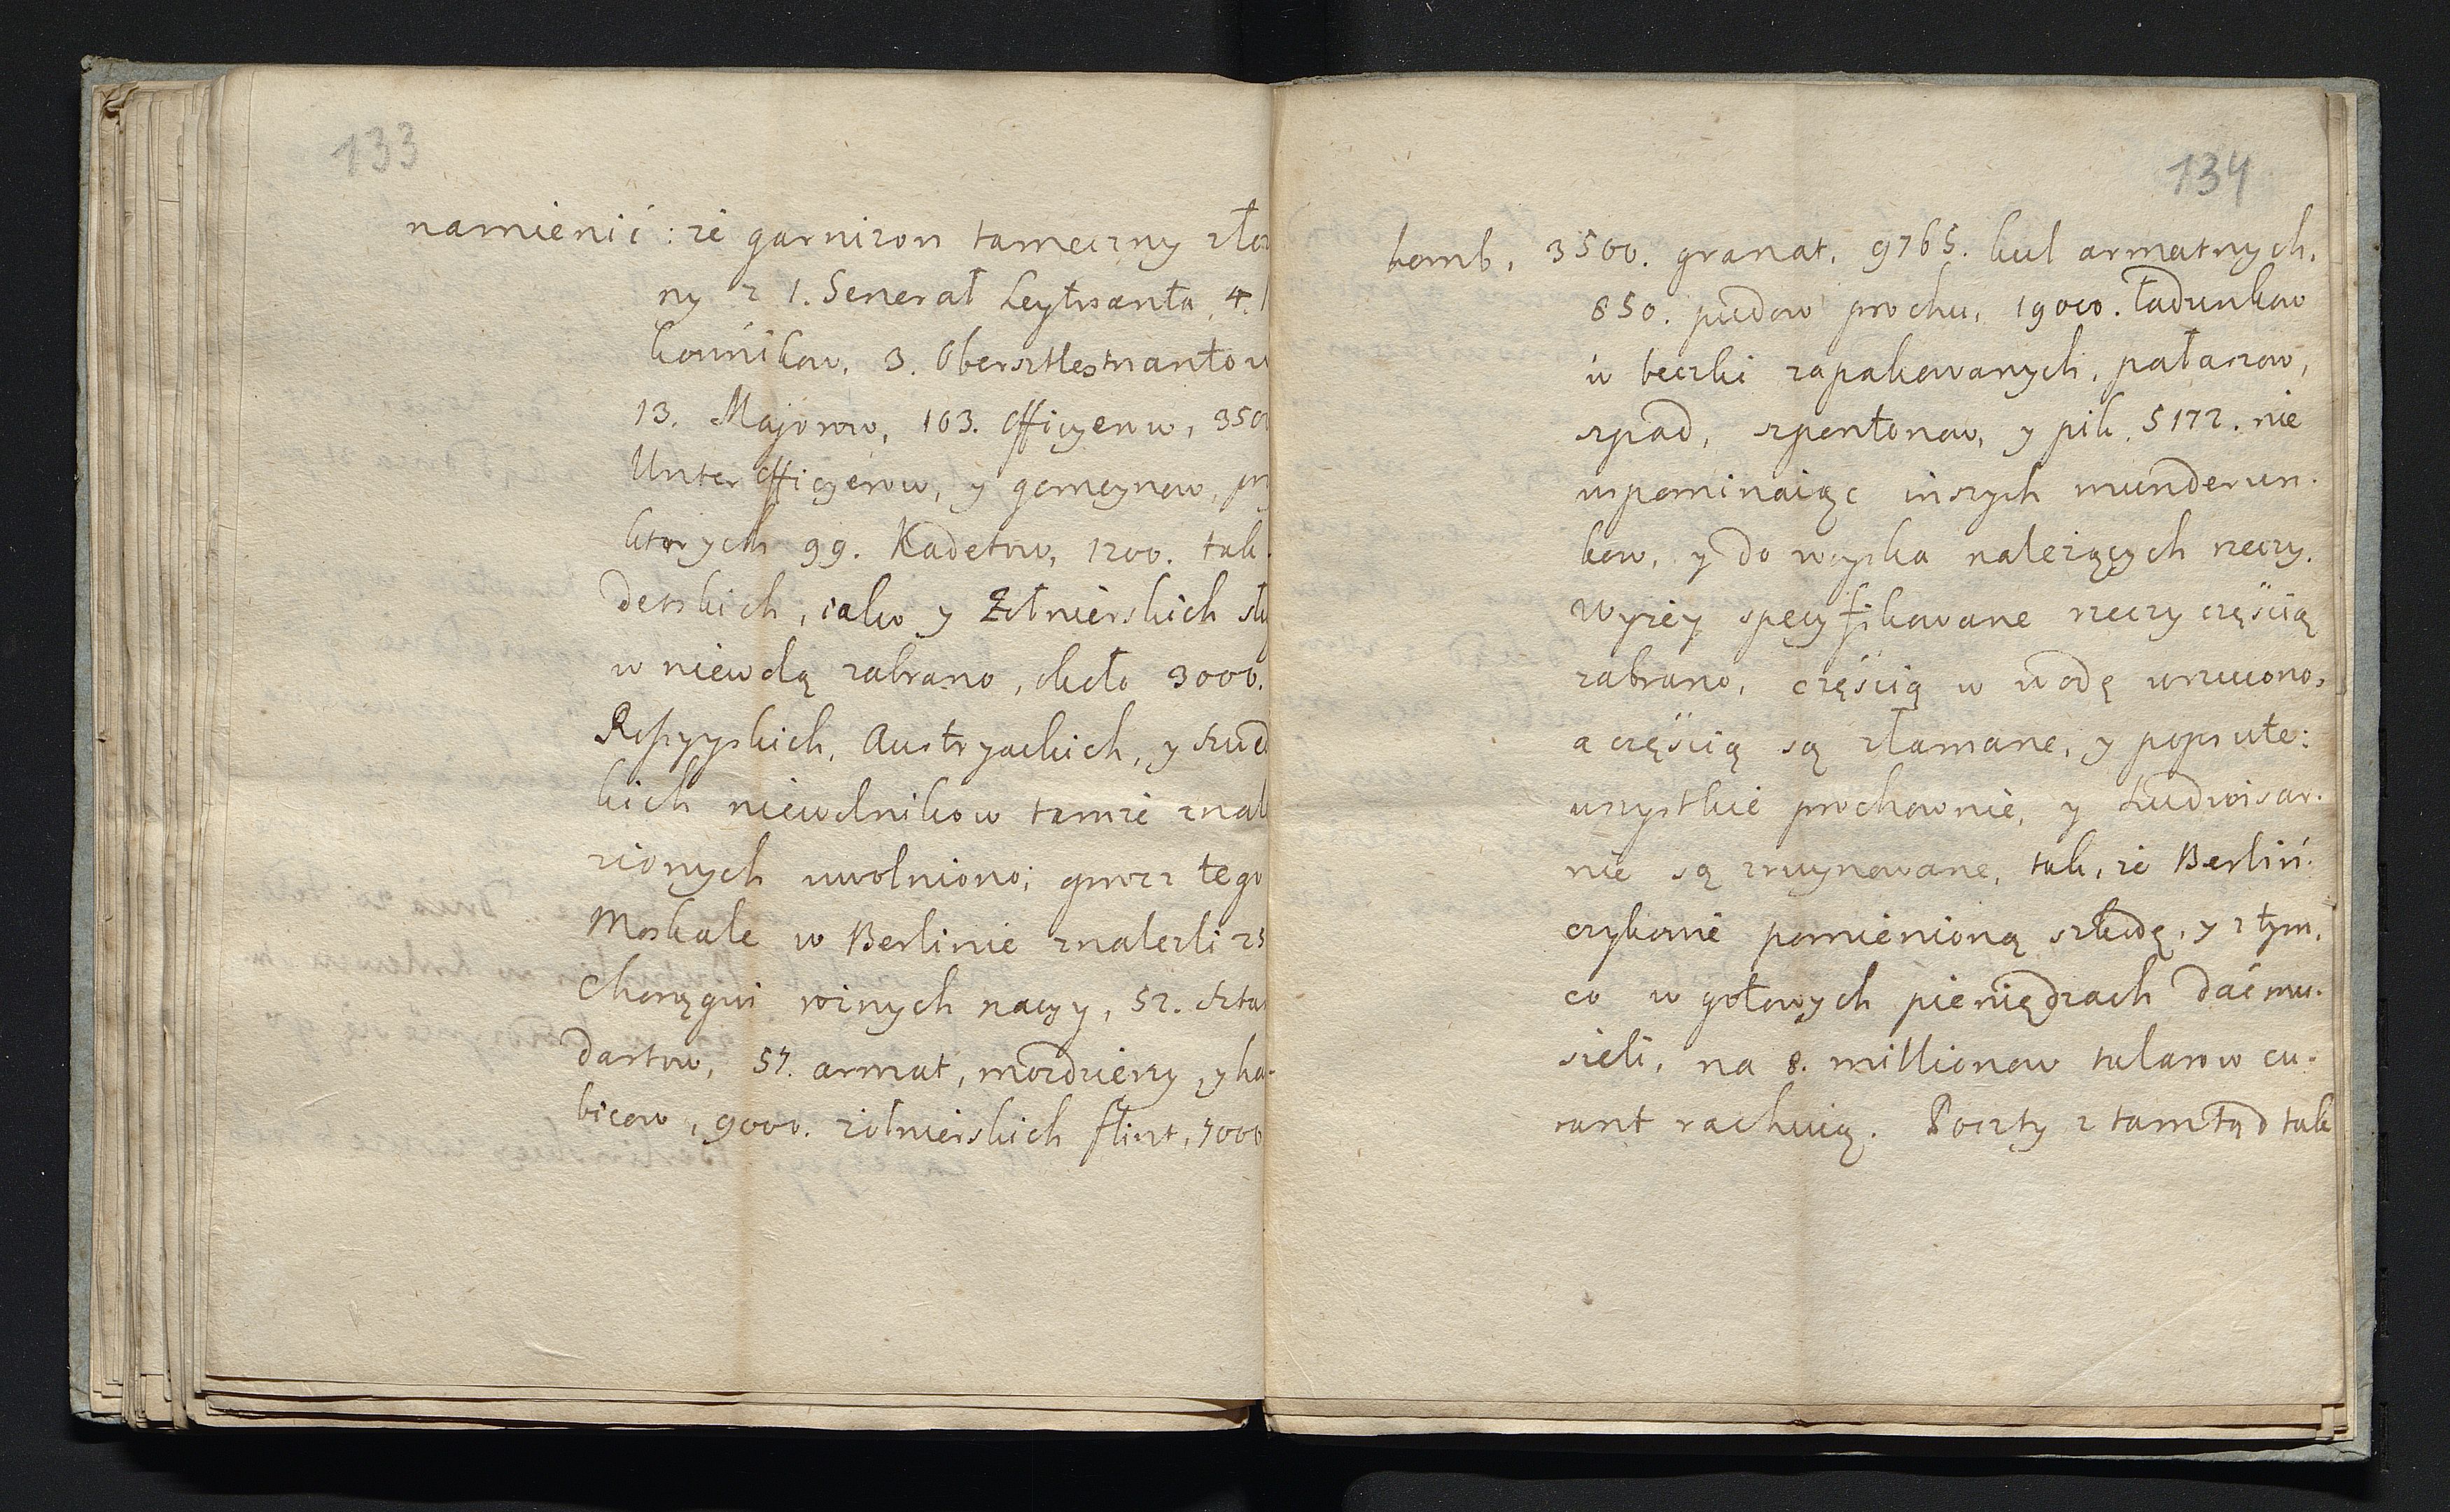 133
namienić: że garnizon tameczny zło
ny z 1. Generał Leytnanta, 4.
kownikow, 3. Obersztleytnantow
13. Majorow, 103. Officyerow, 350
Unterofficyerow, y gemeynow, prz
ktorych 99. Kadetow, 1200. tak
detskich, iako y Żołnierskich słu
w niewolą zabrano, około 3000.
Rossyyskich, Austryackich, y Szwed
kich niewolnikow tamże znal
zionych uwolniono; oprocz tego
Moskale w Berlinie znalezli 25
Chorągwi roznych nacyy, 52. Sztan
dartow, 57. armat, mozdzierzy, y ha.
bicow, 9000. żołnierskich flint, 7000
134
bomb, 3500. granat, 9765. kul armatnych,
850. pudow prochu, 19000. ładunkow
w beczki zapakowanych, pałaszow,
szpad, szpontonow, y pik, 5172. nie
wspominaiąc inszych munderun.
kow, y do woyska należących rzeczy.
Wyżey specyfikowane rzeczy częścią
zabrano, częścią w wodę wrzucono,
a częścią są złamane, y popsute:
wszystkie prochownie, y Ludwisar.
nie są zruynowane, tak, że Berliń.
czykowie pomienioną szkodę, y z tym,
co w gotowych pieniędzach dać mu.
sieli, na 8. millionow talarow cu.
rant rachuią. Poczty z tamtąd tak